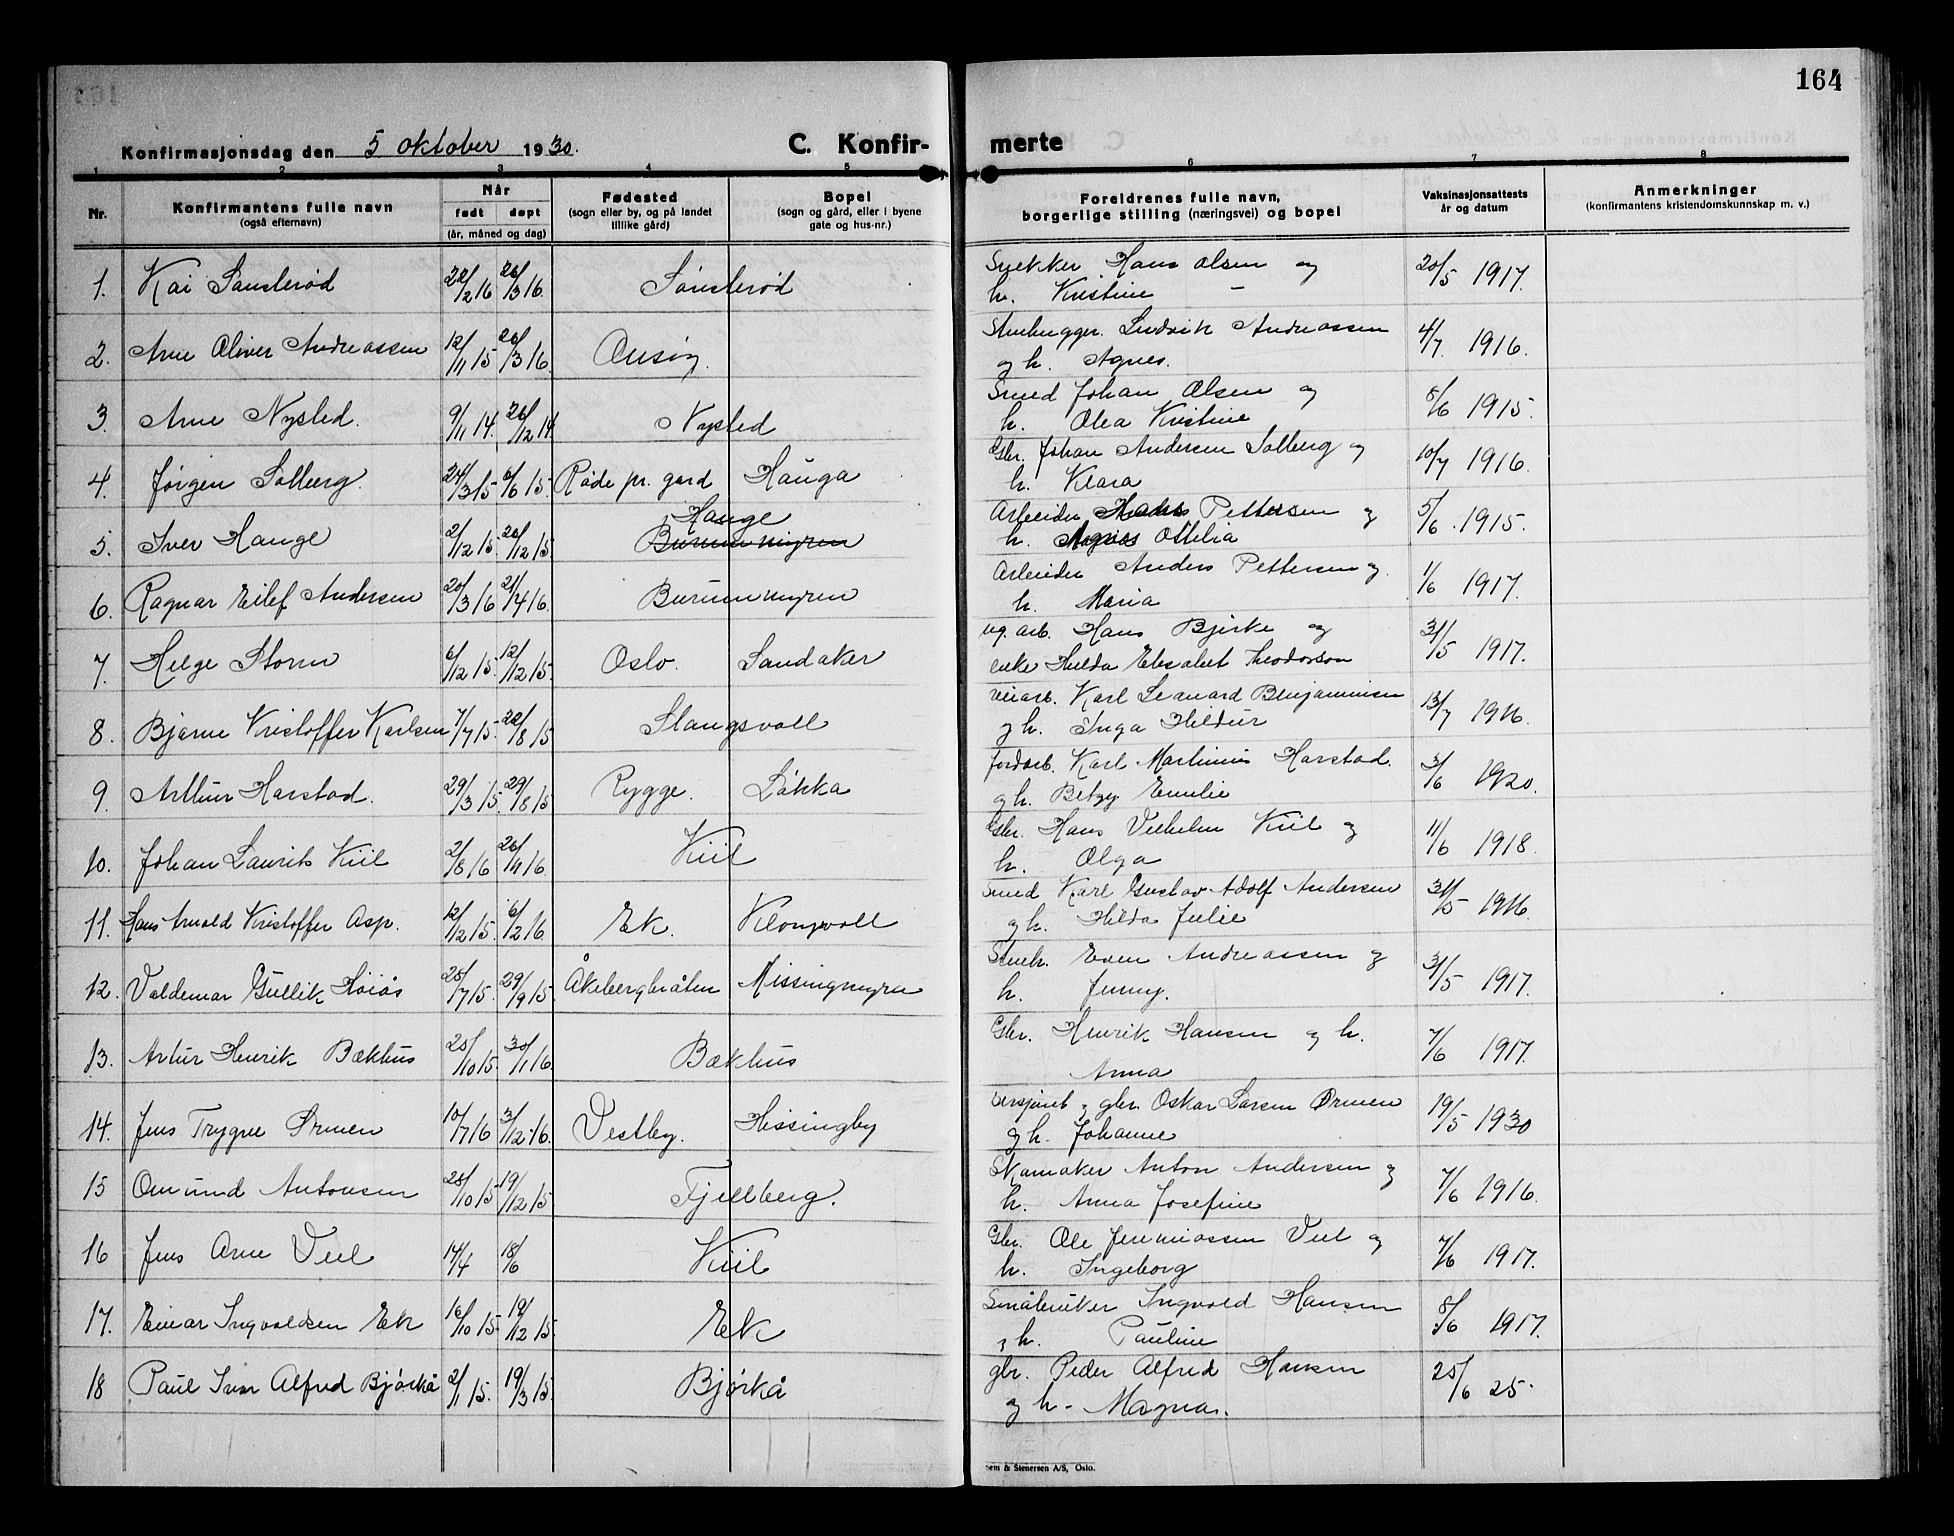 164
Konfirmasjonsdag den 5 oktober 1930.
C. Konfir-
merte
1 2 3 4 5 6 7 8
Nr.
Konfirmantens fulle navn
(også efternavn)
Når
født døpt
(år, måned og dag)
Fødested
(sogn eller by, og på landet
tillike gård)
Bopel
(sogn og gård, eller i byene
gate og hus-nr.)
Foreldrenes fulle navn,
borgerlige stilling (næringsvei) og bopel
Vaksinasjonsattests
år og datum
Anmerkninger
(konfirmantens kristendomskunnskap m. v.)
1. Kai Sønsterød 22/2 16 26/3 16. Sønsterød Snekker Hans Olsen og 20/5 1917.
h. Kristine –
2. Arne Oliver Andreassen 12/11 15 26/3 16. Stenhugger Ludvik Andreassen 4/7. 1916.
og h. Agnes.
3. Arne Nysted. 9/11 14. 26/12 14. Nysted Smed Johan Olsen og 8/6 1915.
h. Olea Kristine
4. Jørgen Solberg. 24/3 15 6/6 15. Råde pr. gard Hauga Gbr. Johan Andersen Solberg og 10/7 1916.
h. Klara
5. Iver Hauge 2/12 15. 26/12 15. Hauge Burummyren Arbeider Hans Pettersen og 5/6. 1915.
h. Agnes Ottilia
6. Ragnar Eilef Andersen 20/3 16 24/4 16. Burummyren Arbeider Anders Pettersen og 1/6 1917.
h. Maria
7. Helge Storm 6/12 15. 12/12 15. Oslo. Sandaker ug. arb. Hans Bjerke og 31/5 1917.
enke Hilda Elisabet Theodorson
8. Bjarne Kristoffer Karlsen 7/7 15. 22/8 15 Slangsvoll veiarb. Karl Leonard Benjaminsen 13/7 1916.
og h. Inga Hildur
9. Arthur Harstad. 29/3 15. 29/8 15 Rygge. Løkka jordarb. Karl Martinius Harstad. 3/6 1920.
og h. Betzy Emilie
10. Johan Laurits Kiil 2/8 16 26/11 16. Kiil Gbr. Hans Vilhelm Kiil og 11/6 1918.
h. Olga
11. Hans Arnold Kristoffer Asp. 12/12 15. 6/2 16. Ek. Klongvoll Smed Karl Gustav Adolf Andersen 31/5 1916.
og h. Hilda Julie
12. Valdemar Gullik Høiås 25/7 15. 29/9 15. Åkebergbråten Missingmyra Stenh. Even Andreassen og 31/5 1917.
h. Jenny.
13. Artur Henrik Bækhus 25/10 15. 30/1 16. Bækhus Gbr. Henrik Hansen og h. 7/6 1917.
Anna
14. Jens Trygve Ørmen 10/7 16 3/12 16. Vestby. Missingby og gbr. Oskar Larsen Ørmen 19/5 1930
og h. Johanne
15 Omund Antonsen 28/10 15 19/12 15 Fjellberg. Skomaker Anton Andersen og 7/6 1916.
h. Anna Josefine
16 Jens Arne Veel 14/4 18/6 Kiil Gbr. Ole Jeremiassen Veel og 7/6 1917.
h. Ingeborg
17. Einar Ingvaldsen Ek 16/10 15. 19/12 15. Ek Småbruker Ingvald Hansen 8/6 1917.
og h. Pauline
18 Paul Ivar Alfred Bjørkå 2/1 15. 19/3 15. Bjørkå gbr. Peder Alfred Hansen 25/6 25.
og h – Magna.
sem & Stenersen A/S, Oslo.